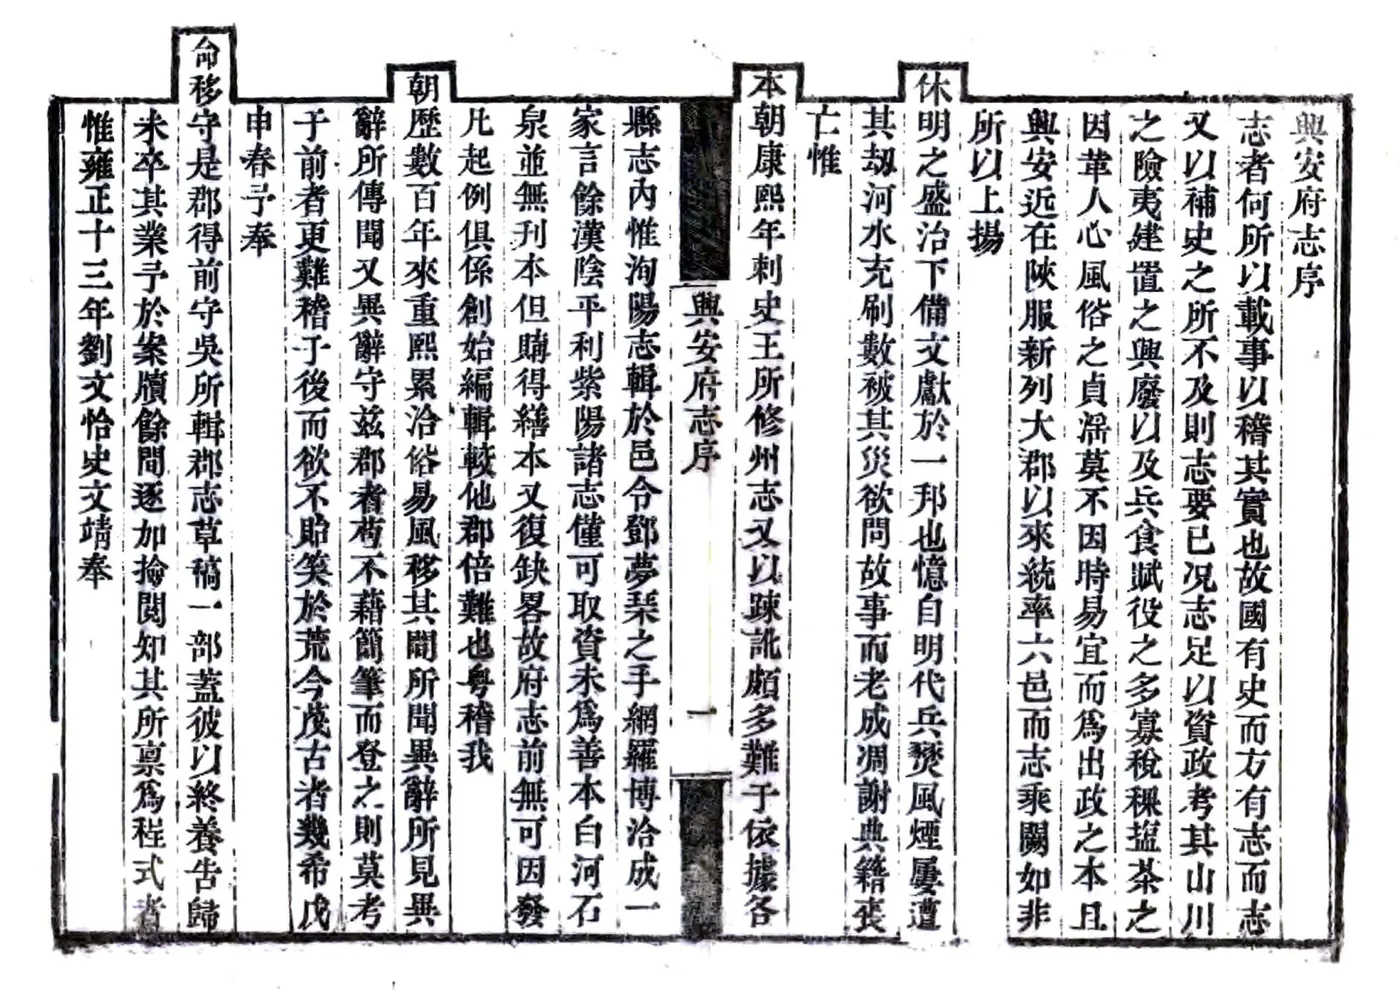 興安府志序
志者何所以載事以稽其實也故國有史而方有志而志
又以補史之所不及則志要已况志足以資政考其山川
之險夷建置之興廢以及兵食賦役之多寡稅稞塩茶之
因革人心風俗之貞滛莫不因時易宜而爲出政之本且
興安近在陜服新列大郡以來統率六邑而志乘闕如非
所以上揚
休明之盛治下備文獻於一邦也憶自明代兵燹風煙屢遭
其刼河水充刷數被其災欲問故事而老成凋謝典籍喪
亡惟
本朝康熙年刺史王所修州志又以踈訛頗多難于依據各
興安府志序
一
縣志內惟洵陽志輯於邑令鄧夢琴之手網羅博洽成一
家言餘漢陰平利紫陽諸志僅可取資未爲善本白河石
泉並無刋本但購得繕本又復缺畧故府志前無可因發
凡起例俱係創始編輯較他郡倍難也粤稽我
朝歷數百年來重熙累洽俗易風移其間所聞異辭所見異
辭所傳聞又異辭守兹郡者苟不藉簡筆而登之則莫考
于前者更難稽于後而欲不貽笑於荒今茂古者幾希戊
申春予奉
命移守是郡得前守吳所輯郡志草稿一部蓋彼以終養告歸
未卒其業予於案牘餘間逐加撿閱知其所禀爲程式者
惟雍正十三年劉文恪史文靖奉